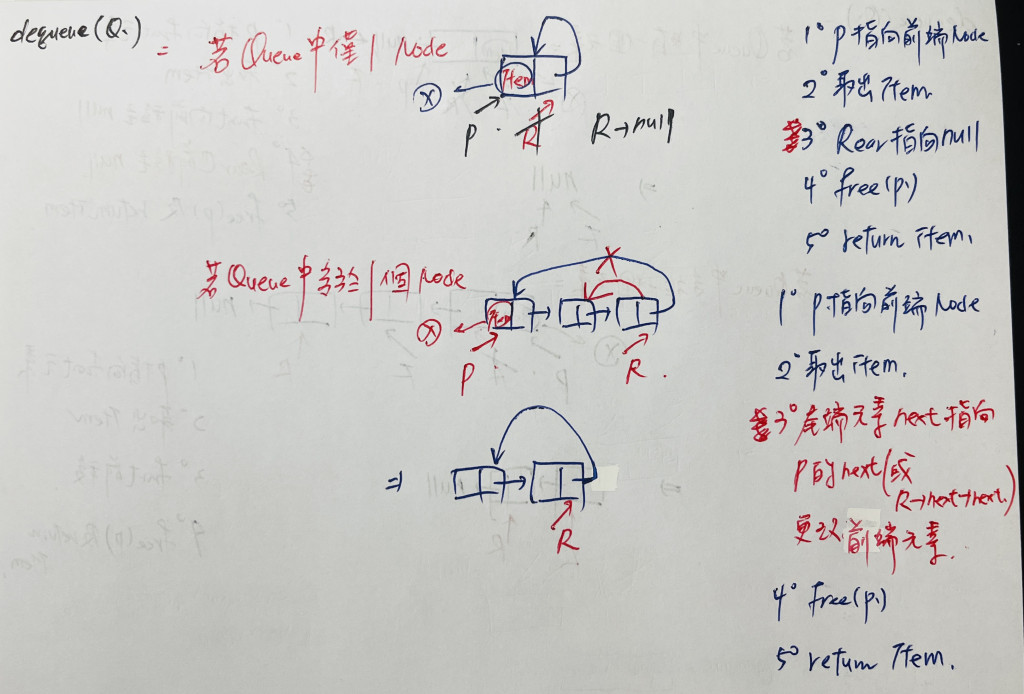 dequeue(Q.)
= 若Queue中僅1 Node
Item
P. R R→null
1° P指向前端Node
2° 取出Item.
3° Rear指向null
4° free(p.)
5° return item.
若Queue中多於1個Node
Item
P R.
1° P指向前端Node
2° 取出item.
3° 尾端元素next指向
P的next(或
R→next→next.)
更改前端元素.
4° free(p.)
5° return Item.
⇒
R